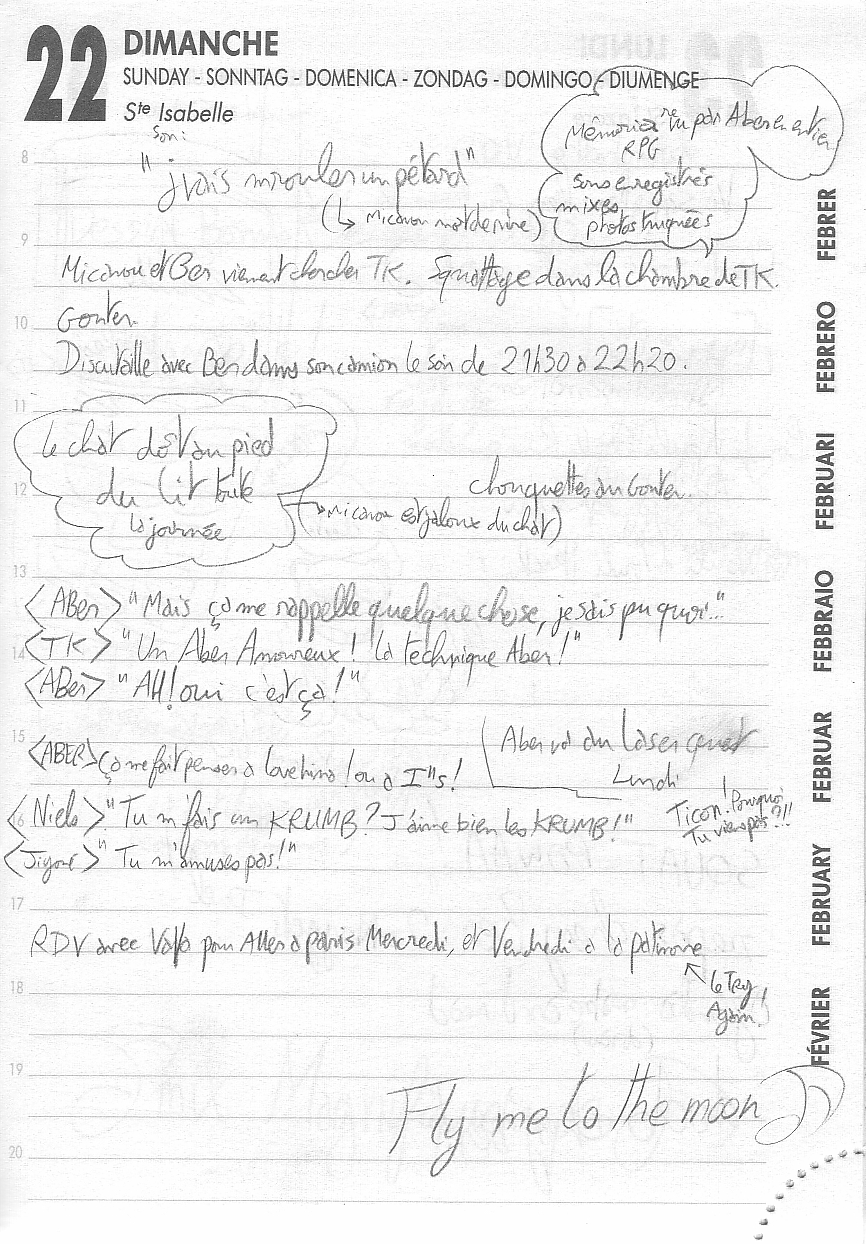 22 DIMANCHE
SUNDAY - SONNTAG - DOMENICA - ZONDAG - DOMINGO - DIUMENGE
Ste Isabelle
Son:
"j'vais m'rouler un pétard"
(↳ Micanou mort de rire)
Mémoria re vu par Aber en entier
RPG
sons enregistrés
mixes
photos truquées
Micanou et Ber viennent chercher TK. Squattage dans la chambre de TK.
Gouter.
Discutaille avec Ber dans son camion le soir de 21h30 a 22h20.
le chat dort au pied
du lit toute
la journée
(→ Micanou est jaloux du chat)
chouquettes au Gouter.
<ABer> "Mais ça me rappelle quelque chose, je sais pu quoi..."
<TK> "Un Aber Amoureux! la technique Aber!"
<ABer> "AH! oui c'est ça!"
<ABER> ça me fait penser a love hina! ou a I"s!
Aber va au laser quest
Lundi
<Niels> "Tu m'fais un KRUMB? J'aime bien les KRUMB!"
Ticon! Pourquoi
Tu viens pas?!!
"Tu m'amuses pas!"
RDV avec pour Aller a paris Mercredi, et Vendredi a la patinoire
le Try
Again!
Fly me to the moon
8
9
10
11
12
13
14
15
16
17
18
19
20
FÉVRIER FEBRUARY FEBRUAR FEBBRAIO FEBRUARI FEBRERO FEBRER